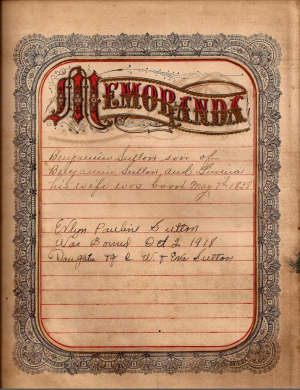 MEMORANDA
Benjamin Sutton son of
Benjamin Sutton and
his wife was born May 7th 1828
Evlyn Pauline Sutton
Was Borned Oct 2 1918
Daughter of C. W. & Eva Sutton